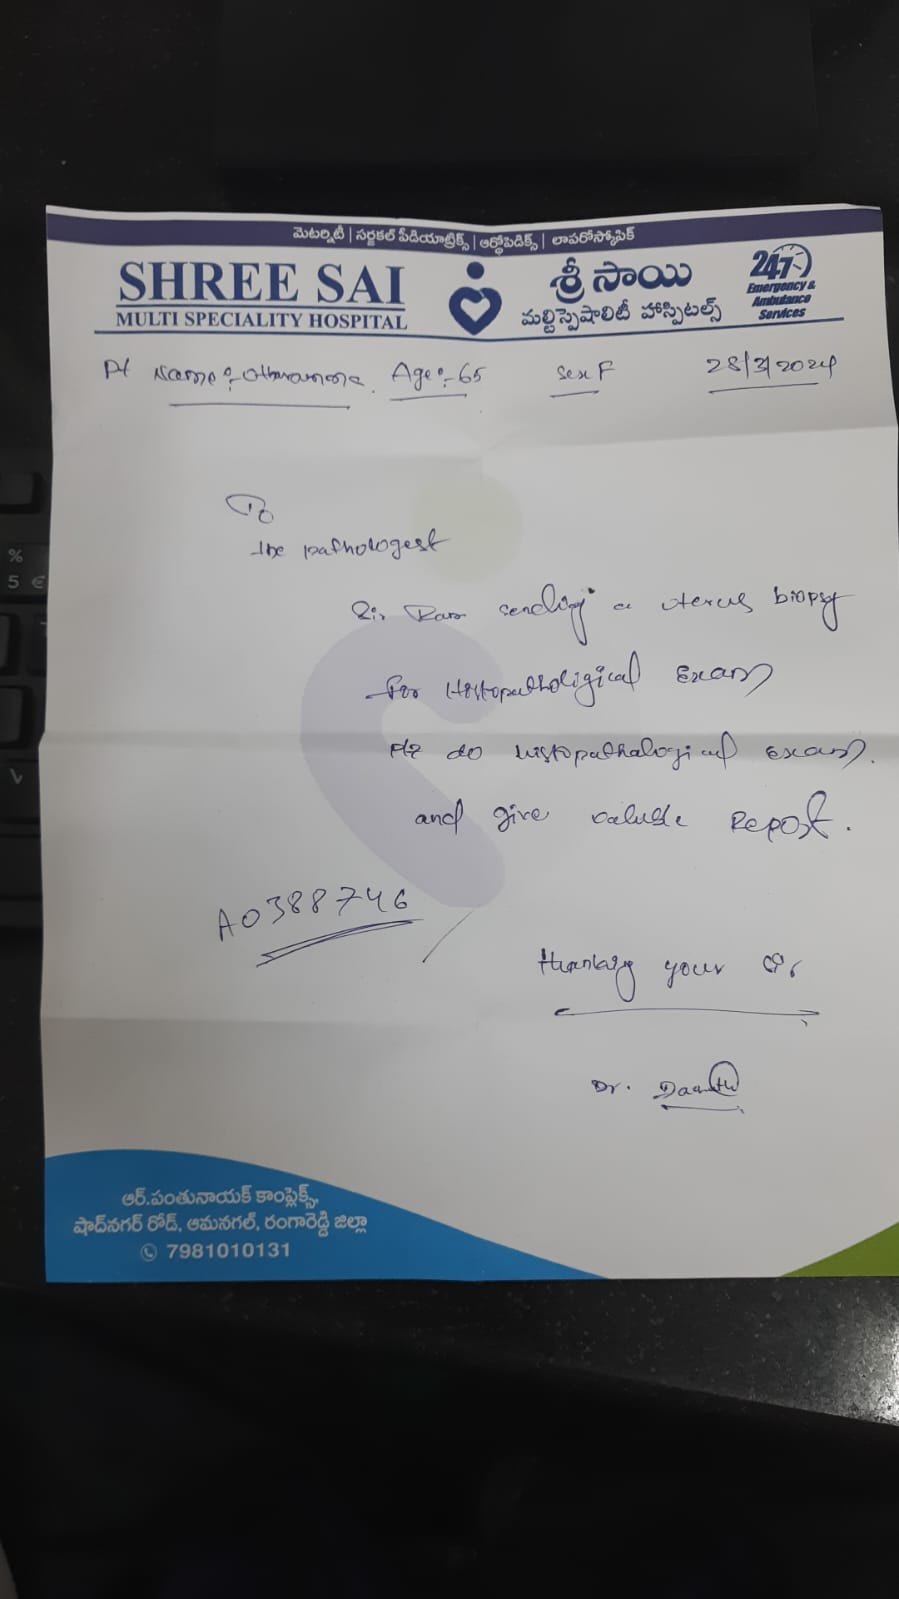 మెటర్నిటీ | సర్జికల్ పీడియాట్రిక్స్ | ఆర్థోపెడిక్స్ | లాపరోస్కోపిక్
SHREE SAI
MULTI SPECIALITY HOSPITAL
శ్రీ సాయి
మల్టిస్పెషాలిటీ హాస్పిటల్స్
247
Emergency &
Ambulance
Services
Pt Name:- Age:- 65 Sex F 28/3/2024
To
the pathologest
Sir sending a uterus biopsy
for Histopathological Exam
Plz do histopathological exam.
and give Report.
A0388746
thanking your
Dr.
ఆర్.పంతునాయక్ కాంప్లెక్స్,
షాద్‌నగర్ రోడ్, ఆమనగల్, రంగారెడ్డి జిల్లా
7981010131
% 
5 €